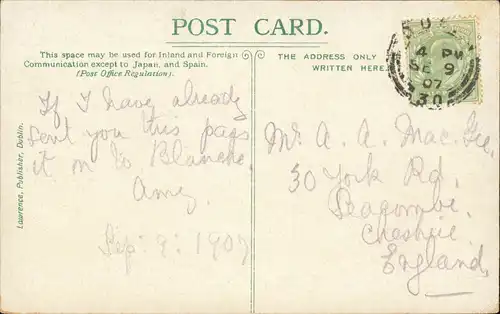 POST CARD.
This space may be used for Inland and Foreign
Communication except to Japan, and Spain.
(Post Office Regulation).
THE ADDRESS ONLY
WRITTEN HERE.
4 PM
SE 9
07
30
If I have already
sent you this pass
it on to Blanche.
Amy.
Sep: 9: 1907
Mr. A. A. Mac.Gee.
30 York Rd.
Seacombe.
Cheshire.
England.
Lawrence, Publisher, Dublin.